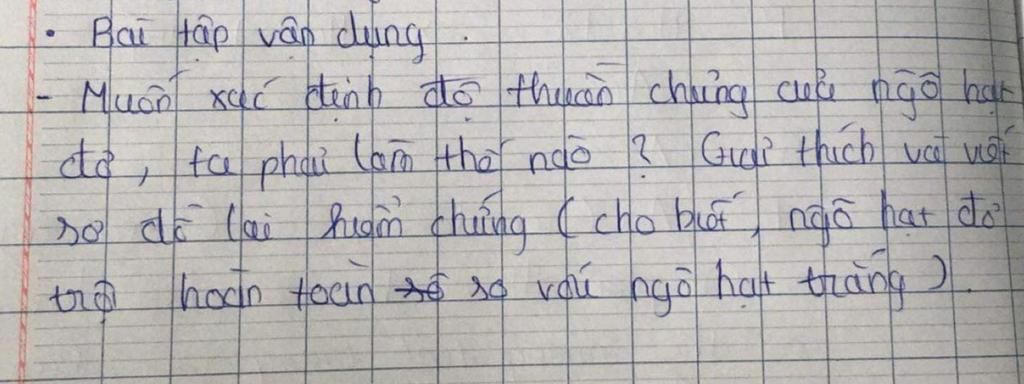 • Bài tập vận dụng.
- Muốn xác định độ thuần chủng của ngô hạt
đỏ, ta phải làm thế nào? Giải thích và viết
sơ đồ lai kiểm chứng (cho biết, ngô hạt đỏ
trội hoàn toàn so với ngô hạt trắng).